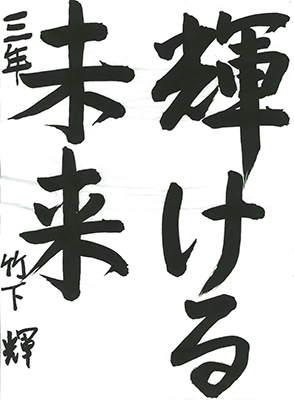 輝ける
未来
三年 竹下輝